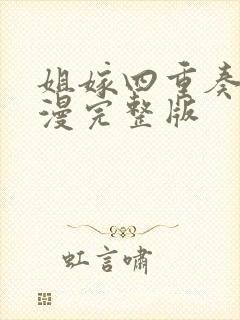 姐嫁四重奏
漫完整版
虹言啸